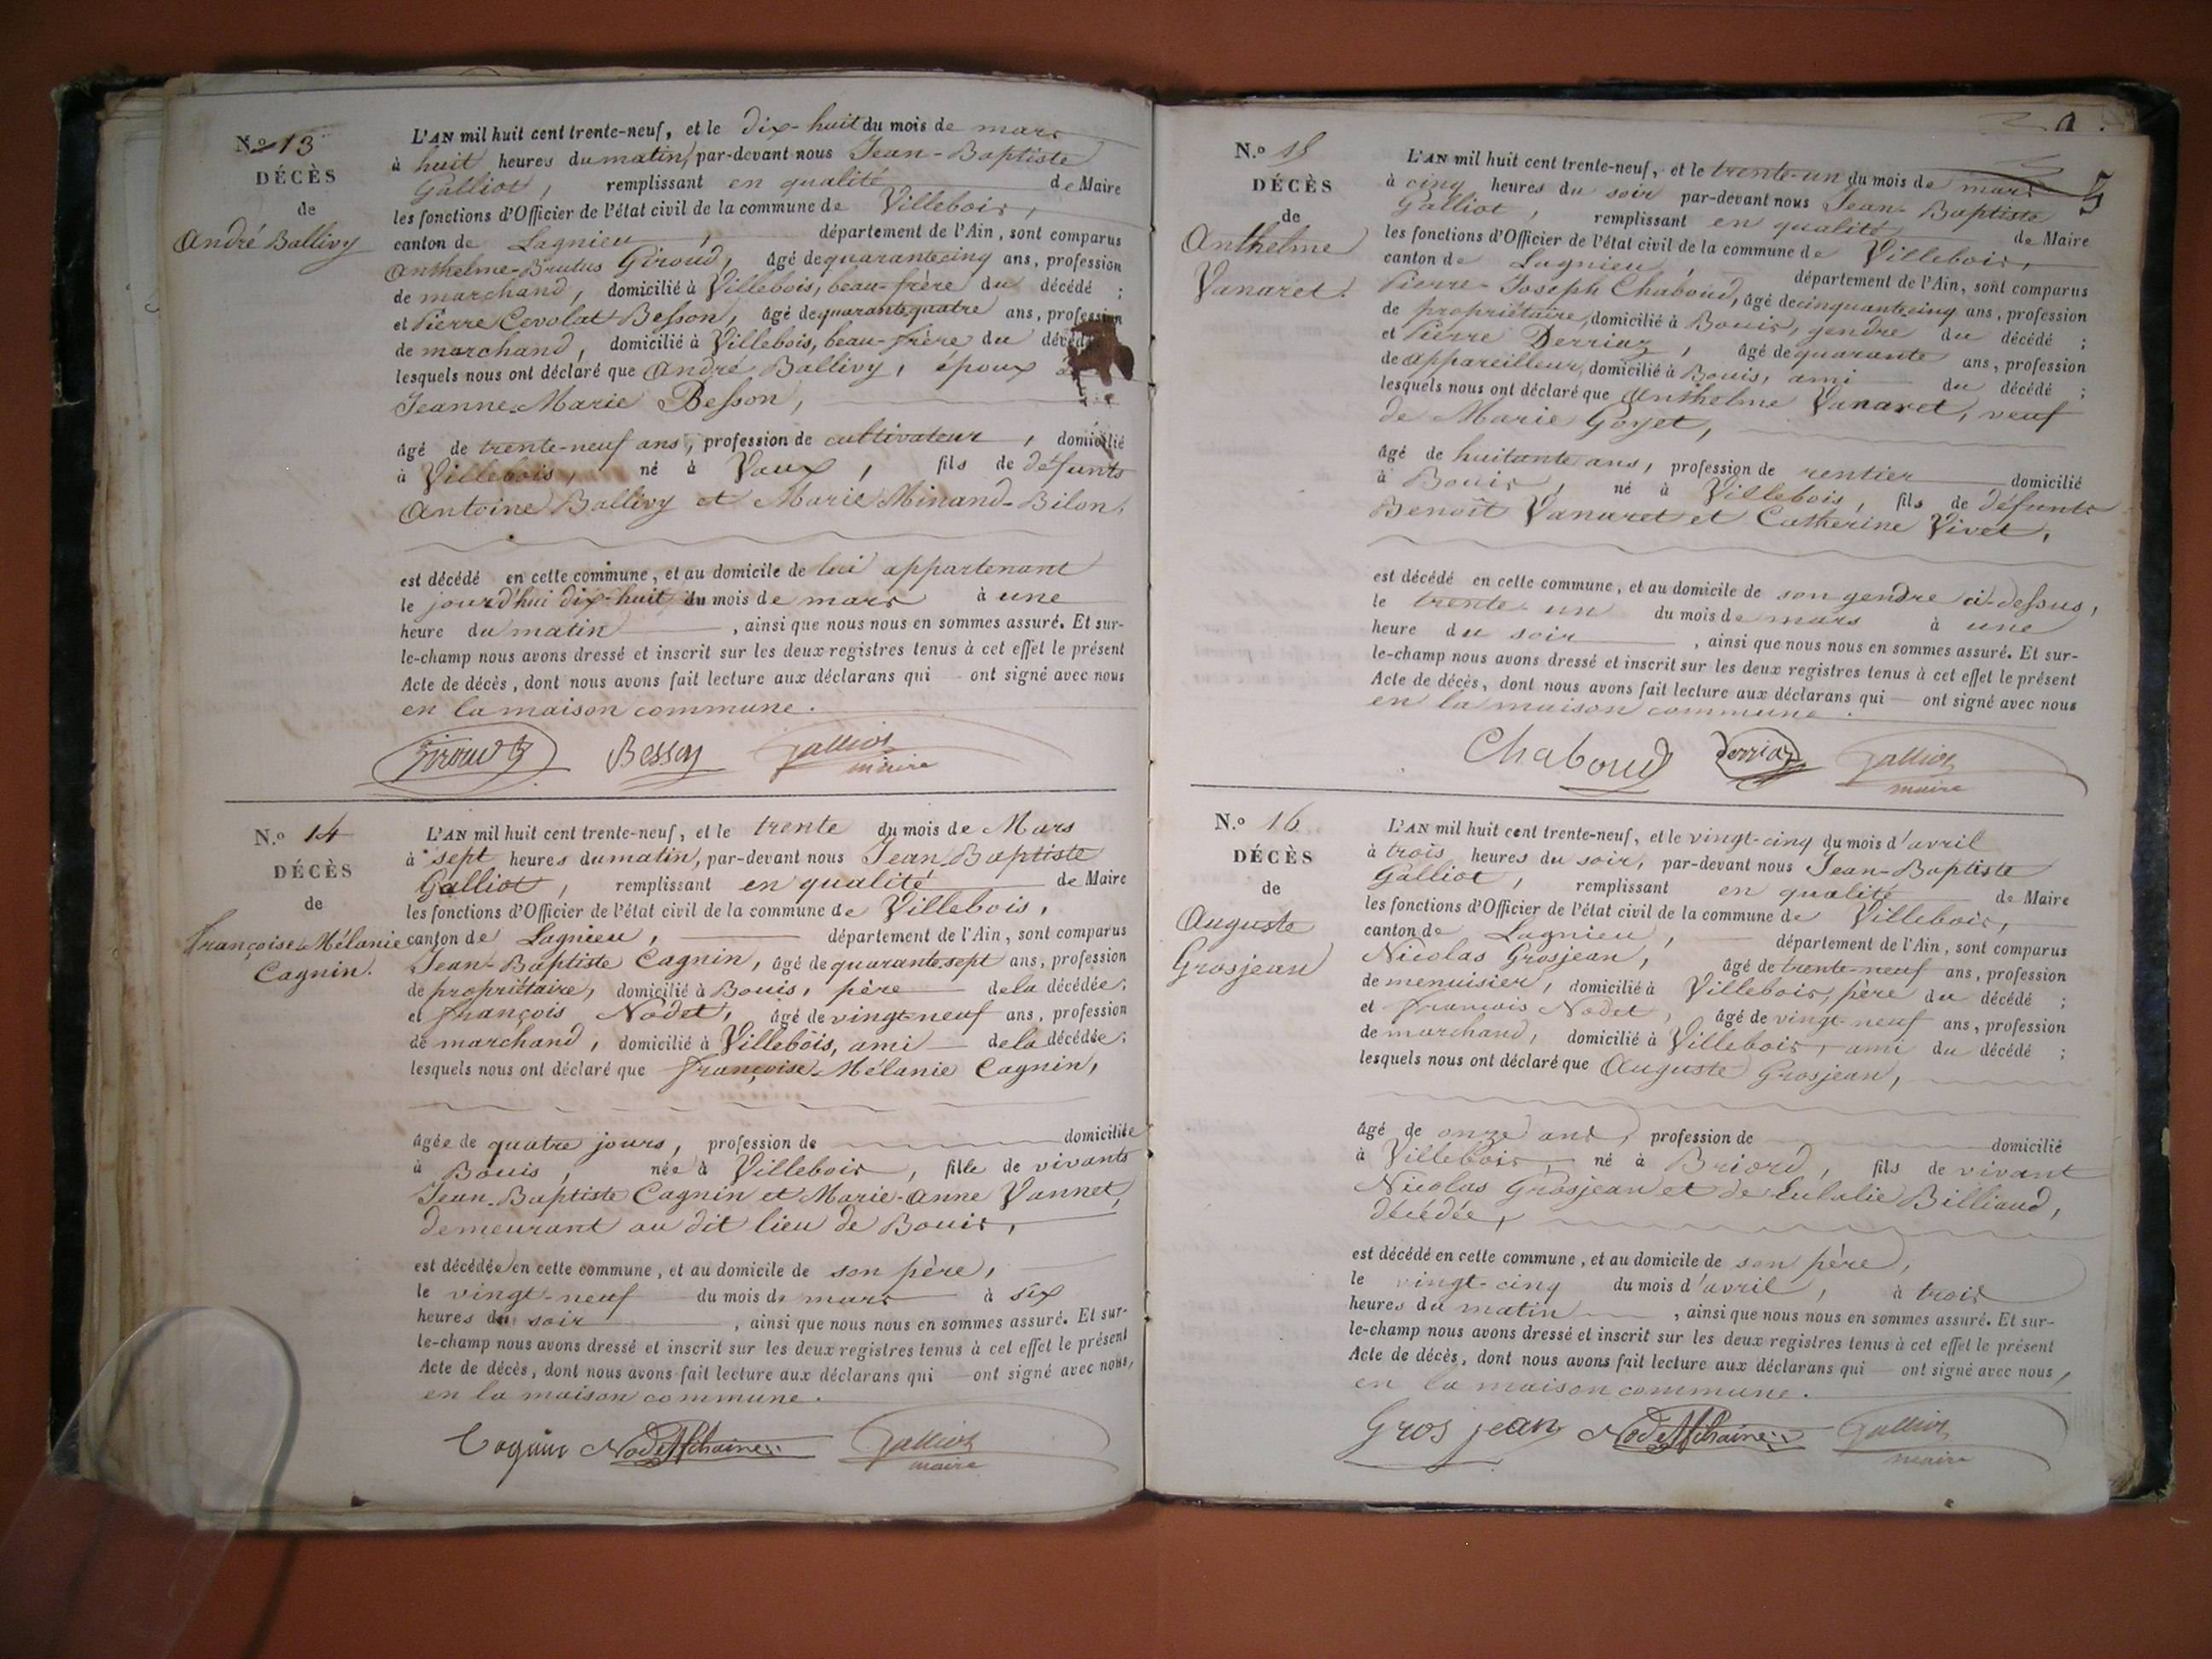 N.º 13
DÉCÈS
de
André Ballivy
L'AN mil huit cent trente-neuf, et le dix-huit du mois de mars
à huit heures du matin, par-devant nous Jean-Baptiste
Galliot, remplissant en qualité de Maire
les fonctions d'Officier de l'état civil de la commune de Villebois,
canton de Lagnieu, département de l'Ain, sont comparus
Anthelme-Brutus Giroud, âgé de quarante cinq ans, profession
de marchand, domicilié à Villebois, beau-frère du décédé ;
et Pierre Cevolat Besson, âgé de quarante quatre ans, profession
de marchand, domicilié à Villebois, beau-frère du
lesquels nous ont déclaré que André Ballivy, époux
Jeanne-Marie Besson,
âgé de trente-neuf ans, profession de cultivateur, domicilié
à Villebois, né à Vaux, fils de défunts
Antoine Ballivy et Marie Minand-Bilon,
est décédé en cette commune, et au domicile de lui appartenant
le jourd'hui dix-huit du mois de mars à une
heure du matin, ainsi que nous nous en sommes assuré. Et sur-
le-champ nous avons dressé et inscrit sur les deux registres tenus à cet effet le présent
Acte de décès, dont nous avons fait lecture aux déclarans qui ont signé avec nous
en la maison commune.
Giroud B Besson Galliot
maire
N.º 14
DÉCÈS
de
Françoise-Mélanie
Cagnin.
L'AN mil huit cent trente-neuf, et le trente du mois de Mars
à sept heures du matin, par-devant nous Jean-Baptiste
Galliot, remplissant en qualité de Maire
les fonctions d'Officier de l'état civil de la commune de Villebois,
canton de Lagnieu, département de l'Ain, sont comparus
Jean-Baptiste Cagnin, âgé de quarante sept ans, profession
de propriétaire, domicilié à Bouis, père de la décédée;
et François Nodet, âgé de vingt-neuf ans, profession
de marchand, domicilié à Villebois, ami de la décédée;
lesquels nous ont déclaré que Françoise-Mélanie Cagnin,
âgée de quatre jours, profession de domiciliée
à Bouis, née à Villebois, fille de vivants
Jean-Baptiste Cagnin et Marie-Anne Vannet,
demeurant au dit lieu de Bouis,
est décédée en cette commune, et au domicile de son père,
le vingt-neuf du mois de mars à six
heures du soir, ainsi que nous nous en sommes assuré. Et sur-
le-champ nous avons dressé et inscrit sur les deux registres tenus à cet effet le présent
Acte de décès, dont nous avons fait lecture aux déclarans qui ont signé avec nous,
en la maison commune.
Cagnin Galliot
maire
5
N.º 15
DÉCÈS
de
Anthelme
Vanaret.
L'AN mil huit cent trente-neuf, et le trente-un du mois de mars
à cinq heures du soir par-devant nous Jean-Baptiste
Galliot, remplissant en qualité de Maire
les fonctions d'Officier de l'état civil de la commune de Villebois,
canton de Lagnieu, département de l'Ain, sont comparus
Pierre-Joseph Chaboud, âgé de cinquante cinq ans, profession
de propriétaire, domicilié à Bouis, gendre du décédé ;
et Pierre Derriaz, âgé de quarante ans, profession
de appareilleur, domicilié à Bouis, ami du décédé ;
lesquels nous ont déclaré que Anthelme Vanaret, veuf
de Marie Goyet,
âgé de huitante ans, profession de rentier domicilié
à Bouis, né à Villebois, fils de défunts
Benoît Vanaret et Catherine Vivet,
est décédé en cette commune, et au domicile de son gendre ci-dessus,
le trente-un du mois de mars à une
heure du soir, ainsi que nous nous en sommes assuré. Et sur-
le-champ nous avons dressé et inscrit sur les deux registres tenus à cet effet le présent
Acte de décès, dont nous avons fait lecture aux déclarans qui ont signé avec nous
en la maison commune.
Chaboud Derriaz Galliot
maire
N.º 16
DÉCÈS
de
Auguste
Grosjean
L'AN mil huit cent trente-neuf, et le vingt-cinq du mois d'avril
à trois heures du soir, par-devant nous Jean-Baptiste
Galliot, remplissant en qualité de Maire
les fonctions d'Officier de l'état civil de la commune de Villebois,
canton de Lagnieu, département de l'Ain, sont comparus
Nicolas Grosjean, âgé de trente-neuf ans, profession
de menuisier, domicilié à Villebois, père du décédé ;
et François Nodet, âgé de vingt-neuf ans, profession
de marchand, domicilié à Villebois, ami du décédé ;
lesquels nous ont déclaré que Auguste Grosjean,
âgé de onze ans, profession de domicilié
à Villebois, né à Briord, fils de vivant
Nicolas Grosjean et de Eulalie Billiaud,
décédée,
est décédé en cette commune, et au domicile de son père,
le vingt-cinq du mois d'avril, à trois
heures du matin, ainsi que nous nous en sommes assuré. Et sur-
le-champ nous avons dressé et inscrit sur les deux registres tenus à cet effet le présent
Acte de décès, dont nous avons fait lecture aux déclarans qui ont signé avec nous,
en la maison commune.
Grosjean Galliot
maire